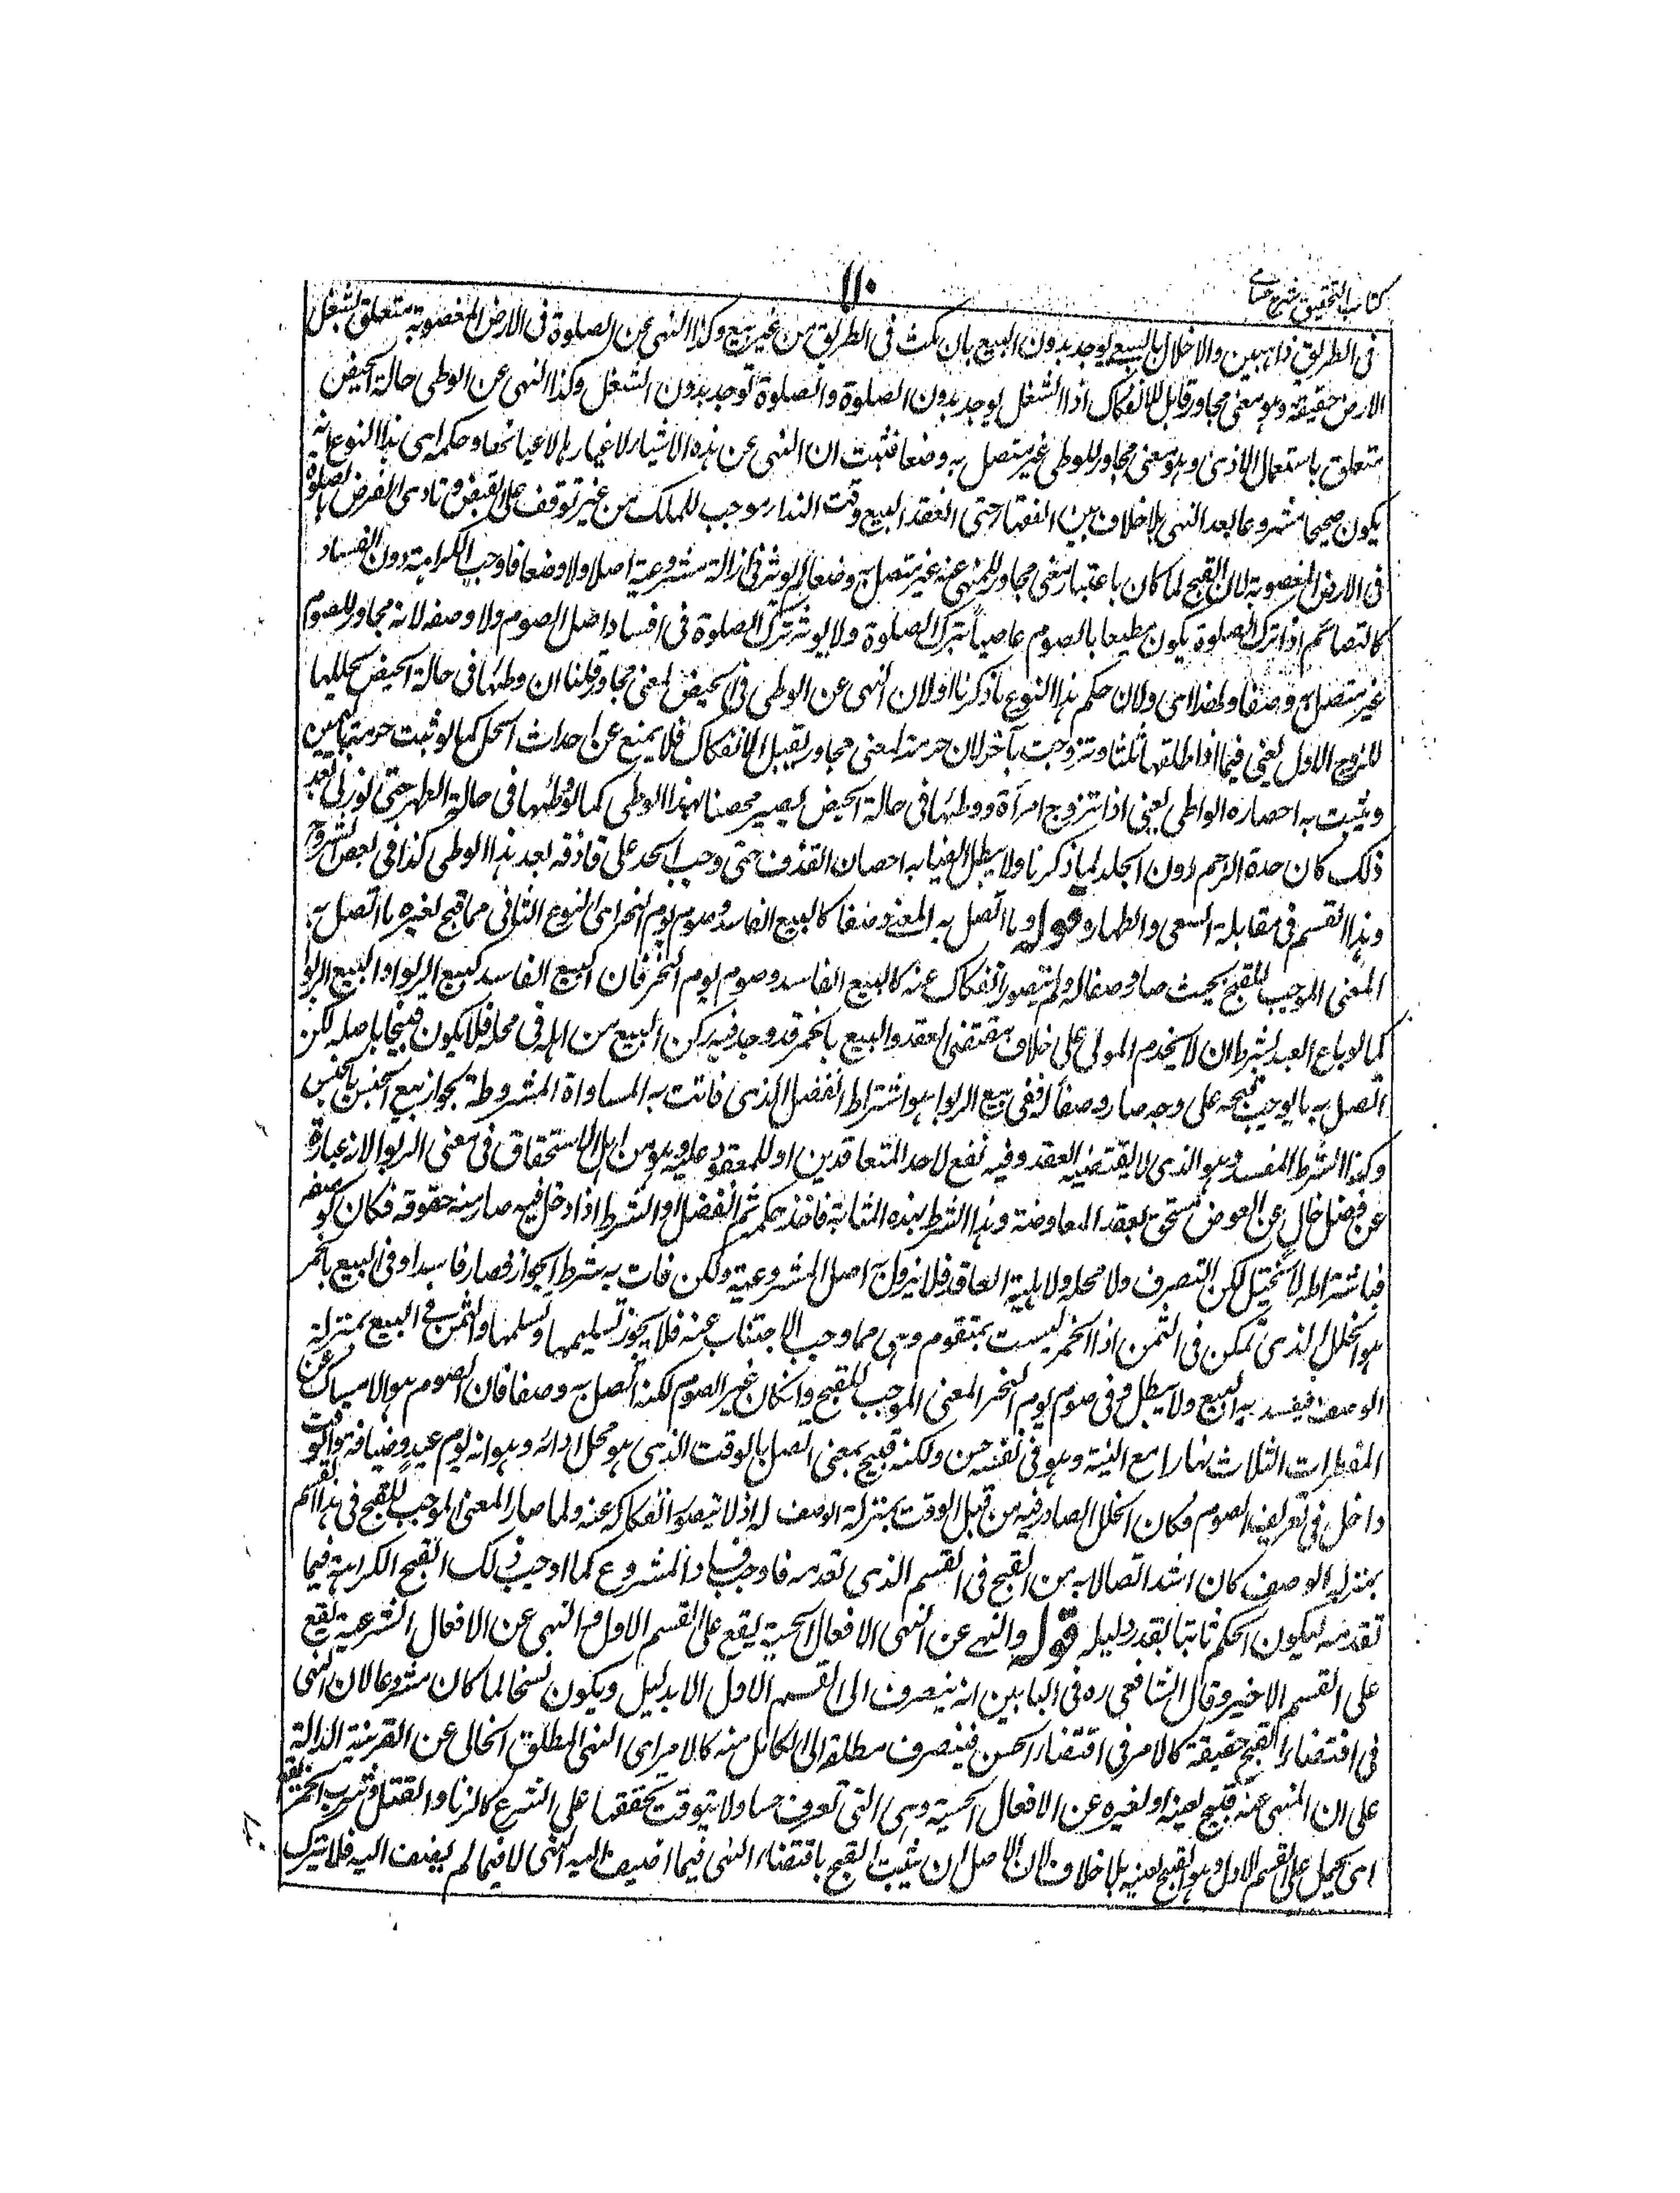 كتاب التحقيق شرح حسامي
١١٠
فى الطريق ذاهبين والاخلال بالبيع يوجد بدون البيع بان مكث فى الطريق من غير بيع وكذا النهى عن الصلوة فى الارض المغصوبة متعلق بشغل
الارض حقيقة وهو معنى مجاور قابل للانفكاك اذ الشغل يوجد بدون الصلوة والصلوة توجد بدون الشغل وكذا النهى عن الوطى حالة الحيض
متعلق باستعمال الاذى وهو معنى مجاور للوطى غير متصل به وضعا فثبت ان النهى عن هذه الاشياء لاغيارها لا عيانها وحكمه اى هذا النوع انه
يكون صحيحا مشروعا بعد النهى بلا خلاف بين الفقهاء حتى انعقد البيع وقت النداء موجب للملك من غير توقف على القبض وتادى الفرض بالصلوة
فى الارض المغصوبة لان القبح لما كان باعتبار معنى مجاور للمنهى عنه غير متصل به وضعا لم يوثر فى ازالة مشروعية اصلا ولا وضعا فاوجب الكراهة دون الفساد
كالصائم اذا ترك الصلوة يكون مطيعا بالصوم عاصياً بترك الصلوة ولا يوثر ترك الصلوة فى افساد اصل الصوم ولا وصفه لانه مجاور للصوم
غير متصل به وصفا ولهذا اى ولان حكم هذا النوع ما ذكرنا اولان النهى عن الوطى فى الحيض لمعنى مجاور قلنا ان وطئها فى حالة الحيض يحللها
للزوج الاول يعنى فيما اذا طلقها ثلثا وتزوجت بآخر لان حرمته لمعنى مجاور يقبل الانفكاك فلا يمنع عن احداث الحل كما لو ثبت حرمته باليمين
ويثبت به احصان الواطى يعنى اذا تزوج امرأة ووطئها فى حالة الحيض يصير محصنا بهذا الوطى كما لو وطئها فى حالة الطهر حتى لو زنى بعد
ذلك كان حده الرجم دون الجلد لما ذكرنا ولا يبطل ايضا به احصان القذف حتى وجب الحد على قاذفه بعد هذا الوطى كذا فى بعض الشروح
وهذا القسم فى مقابلة السعى والطهارة قوله وما اتصل به المعنى وصفا كالبيع الفاسد وصوم يوم النحر اى النوع الثانى مما قبح لغيره ما اتصل به
المعنى الموجب للقبح بحيث صار وصفا له ولم يتصور انفكاك عنه كالبيع الفاسد وصوم يوم النحر فان البيع الفاسد كبيع الربوا والبيع الربوا
كما لو باع العبد بشرط ان لا يخدم المولى على خلاف مقتضى العقد والبيع بالخمر قد وجد فيه ركن البيع من اهله فى محله فلا يكون قبيحا باصله لكن
اتصل به ما يوجب قبحه على وجه صار وصفاً له ففى بيع الربوا هو اشتراط الفضل الذى فاتت به المساواة المشروطة لجواز بيع الجنس بالجنس
وكذا الشرط المفسد وهو الذى لا يقتضيه العقد وفيه نفع لاحد المتعاقدين او للمعقود عليه وهو من اهل الاستحقاق فى معنى الربوا لانه عبارة
عن فضل خالٍ عن العوض مستحق بعقد المعاوضة وهذا الشرط بهذه المثابة فاخذ حكمه ثم الفضل او الشرط اذا دخل فيه صار منه حقوقه فكان كوصفه
فباشتراطه لا يختل ركن التصرف ولا محله ولا اهلية العاقد فلا يزول به اصل المشروعية ولكن فات به شرط الجواز فصار فاسدا وفى البيع بالخمر
هو الخلل الذى تمكن فى الثمن اذ الخمر ليست بمتقوم وهى مما وجب الاجتناب عنه فلا يجوز تسليمها وتسلمها والثمن فى البيع بمنزلة
الوصف فيفسد به البيع ولا يبطل وفى صوم يوم النحر المعنى الموجب للقبح وان كان غير الصوم لكنه اتصل به وصفا فان الصوم هو الامساك عن
المفطرات الثلاث نهارا مع النية وهو فى نفسه حسن ولكنه قبيح بمعنى اتصل بالوقت الذى هو محل ادائه وهو انه يوم عيدٍ وضيافة والوقت
داخل فى تعريف الصوم فكان الخلل الصادر فيه من قبل الوقت بمنزلة الوصف له اذ لا يتصور انفكاكه عنه ولما صار المعنى الموجب للقبح فى هذا القسم
بمنزلة الوصف كان اشد اتصالا به من القبح فى القسم الذى تقدمه فاوجب فساد المشروع كما اوجب ذلك القبح الكراهة فيما
تقدمه ليكون الحكم ثابتا بقدر دليله قوله والنهى عن النهى الافعال الحسية يقع على القسم الاول والنهى عن الافعال الشرعية يقع
على القسم الاخير وقال الشافعى ره فى البابين انه ينصرف الى القسم الاول الا بدليل ويكون نسخا لما كان مشروعا لان النهى
فى اقتضاء القبح حقيقة كالامر فى اقتضاء الحسن فينصرف مطلقه الى الكامل منه كالامر اى النهى المطلق الخالى عن القرينة الدالة
على ان المنهى عنه قبيح لعينه او لغيره عن الافعال الحسية وهى التى تعرف حسا ولا يتوقف تحققها على الشرع كالزنا والقتل وشرب الخمر يقع
اى يحمل على القسم الاول وهو القبح لعينه بلا خلاف لان الاصل ان يثبت القبح باقتضاء النهى فيما اضيف اليه النهى لا فيما لم يضف اليه فلا يترك